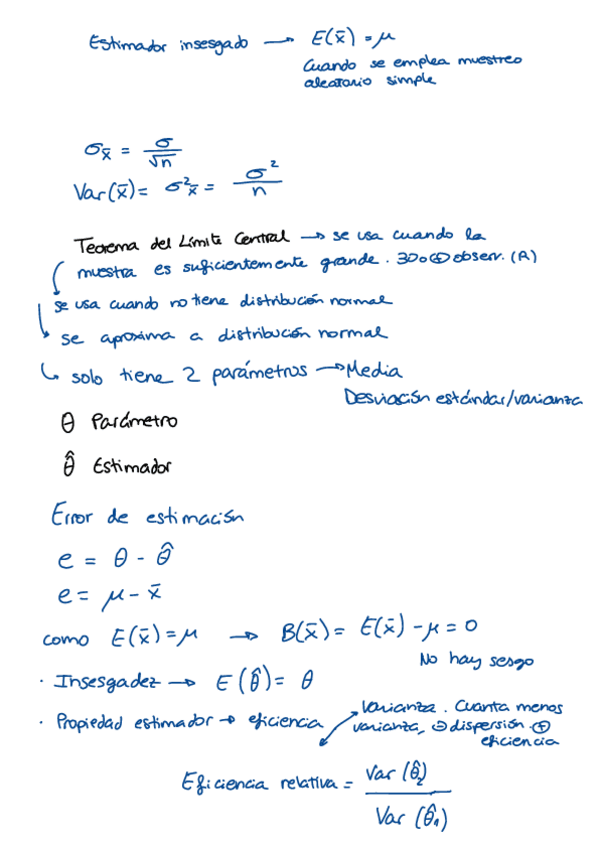 Estimador insesgado → E(x̄) = μ
Cuando se emplea muestreo
aleatorio simple
σx̄ = σ/√n
Var(x̄) = σ²x̄ = σ²/n
Teorema del Límite Central → se usa cuando la
muestra es suficientemente grande. 30 o ⊕ observ. (R)
se usa cuando no tiene distribución normal
se aproxima a distribución normal
↳ solo tiene 2 parámetros → Media
Desviación estándar/varianza
θ Parámetro
θ̂ Estimador
Error de estimación
e = θ - θ̂
e = μ - x̄
como E(x̄) = μ → B(x̄) = E(x̄) - μ = 0
No hay sesgo
· Insesgadez → E(θ̂) = θ
· Propiedad estimador → eficiencia
Varianza. Cuanta menos
varianza, ⊖ dispersión. ⊕
eficiencia
Eficiencia relativa = Var(θ̂₂)/Var(θ̂₁)